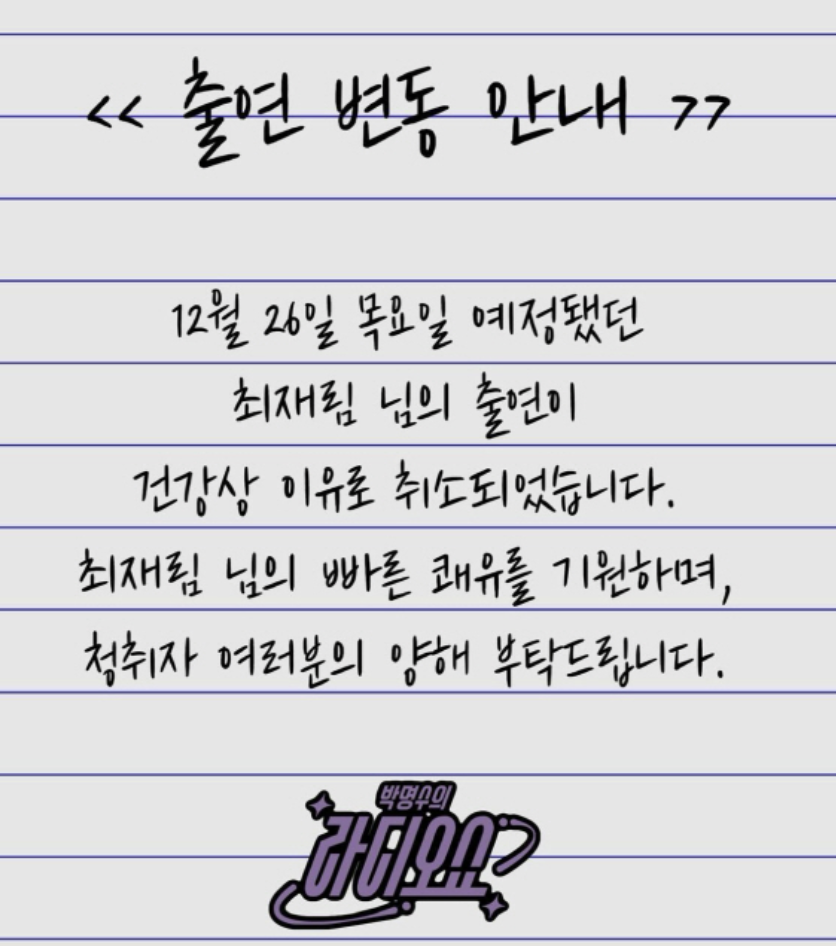 << 출연 변동 안내 >>
12월 26일 목요일 예정됐던
최재림 님의 출연이
건강상 이유로 취소되었습니다.
최재림 님의 빠른 쾌유를 기원하며,
청취자 여러분의 양해 부탁드립니다.
박명수의
라디오쇼